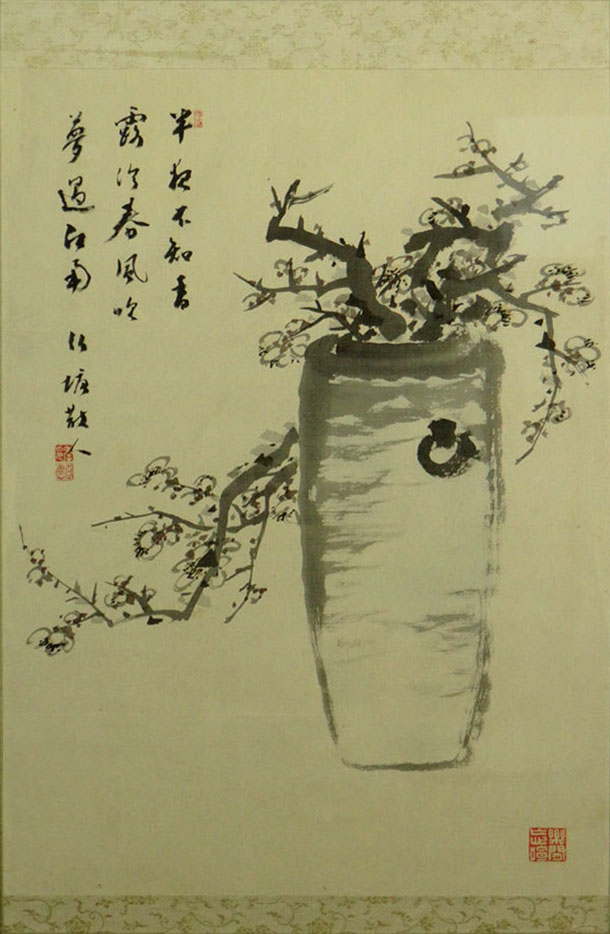 半夜不知香
露冷春風吹
夢過江南 塘散人